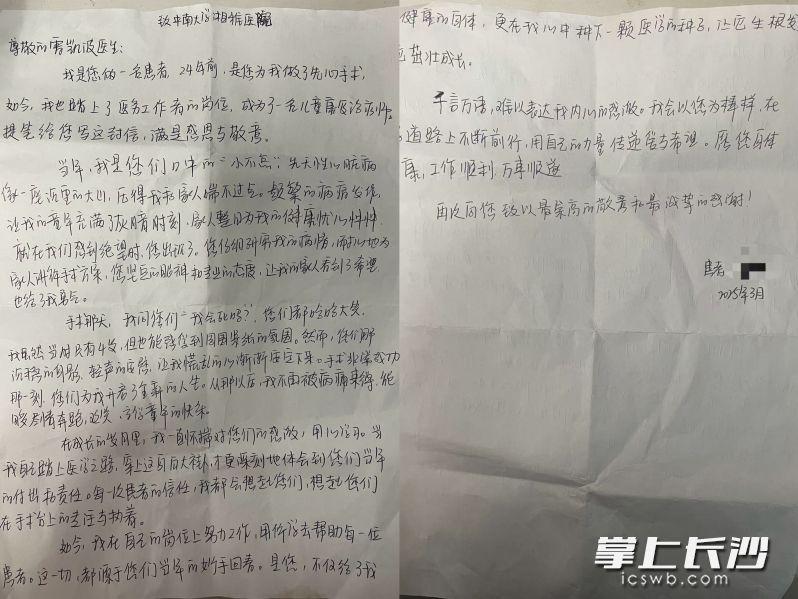 致中南大学湘雅医院
尊敬的雷凯波医生：
我是您的一名患者，24年前，是您为我做了先心手术，
如今，我也踏上了医务工作者的岗位，成为了一名儿童康复治疗师。
提笔给您写这封信，满是感恩与敬意。
当年，我是您们口中的“小不点”，先天性心脏病
像一座沉重的大山，压得我和家人喘不过气。频繁的病痛发作，
让我的童年充满了灰暗时刻，家人整日为我的健康忧心忡忡。
就在我们感到绝望时，您出现了。您仔细研究我的病情，耐心地为
家人讲解手术方案，您坚定的眼神和专业的态度，让我的家人看到了希望，
也给了我勇气。
手术那天，我问您们“我会死吗？”，您们都哈哈大笑，
我虽然当时只有4岁，但也能感受到周围紧张的氛围。然而，您们那
沉稳的身影，轻声的安慰，让我慌乱的心渐渐安定下来。手术成功
那一刻，您们为我开启了全新的人生。从那以后，我不再被病痛束缚，能
够尽情奔跑，欢笑，享受童年的快乐。
在成长的岁月里，我一直怀揣对您们的感激，用心学习。当
我自己踏上医学之路，穿上这身白大褂，才更深刻地体会到您们当年
的付出和责任。每一次患者的信任，我都会想起您们，想起您们
在手术台上的专注与执着。
如今，我在自己的岗位上努力工作，用所学去帮助每一位
患者。这一切，都源于您们当年的妙手回春。是您，不仅给了我
健康的身体，更在我心中种下一颗医学的种子，让它生根发
茁壮成长。
千言万语，难以表达我内心的感激。我会以您为榜样，在
道路上不断前行，用自己的力量传递爱与希望。愿您身体
康，工作顺利，万事顺遂
再次向您致以最崇高的敬意和最诚挚的感谢！
患者
2025年3月
掌上长沙
icswb.com